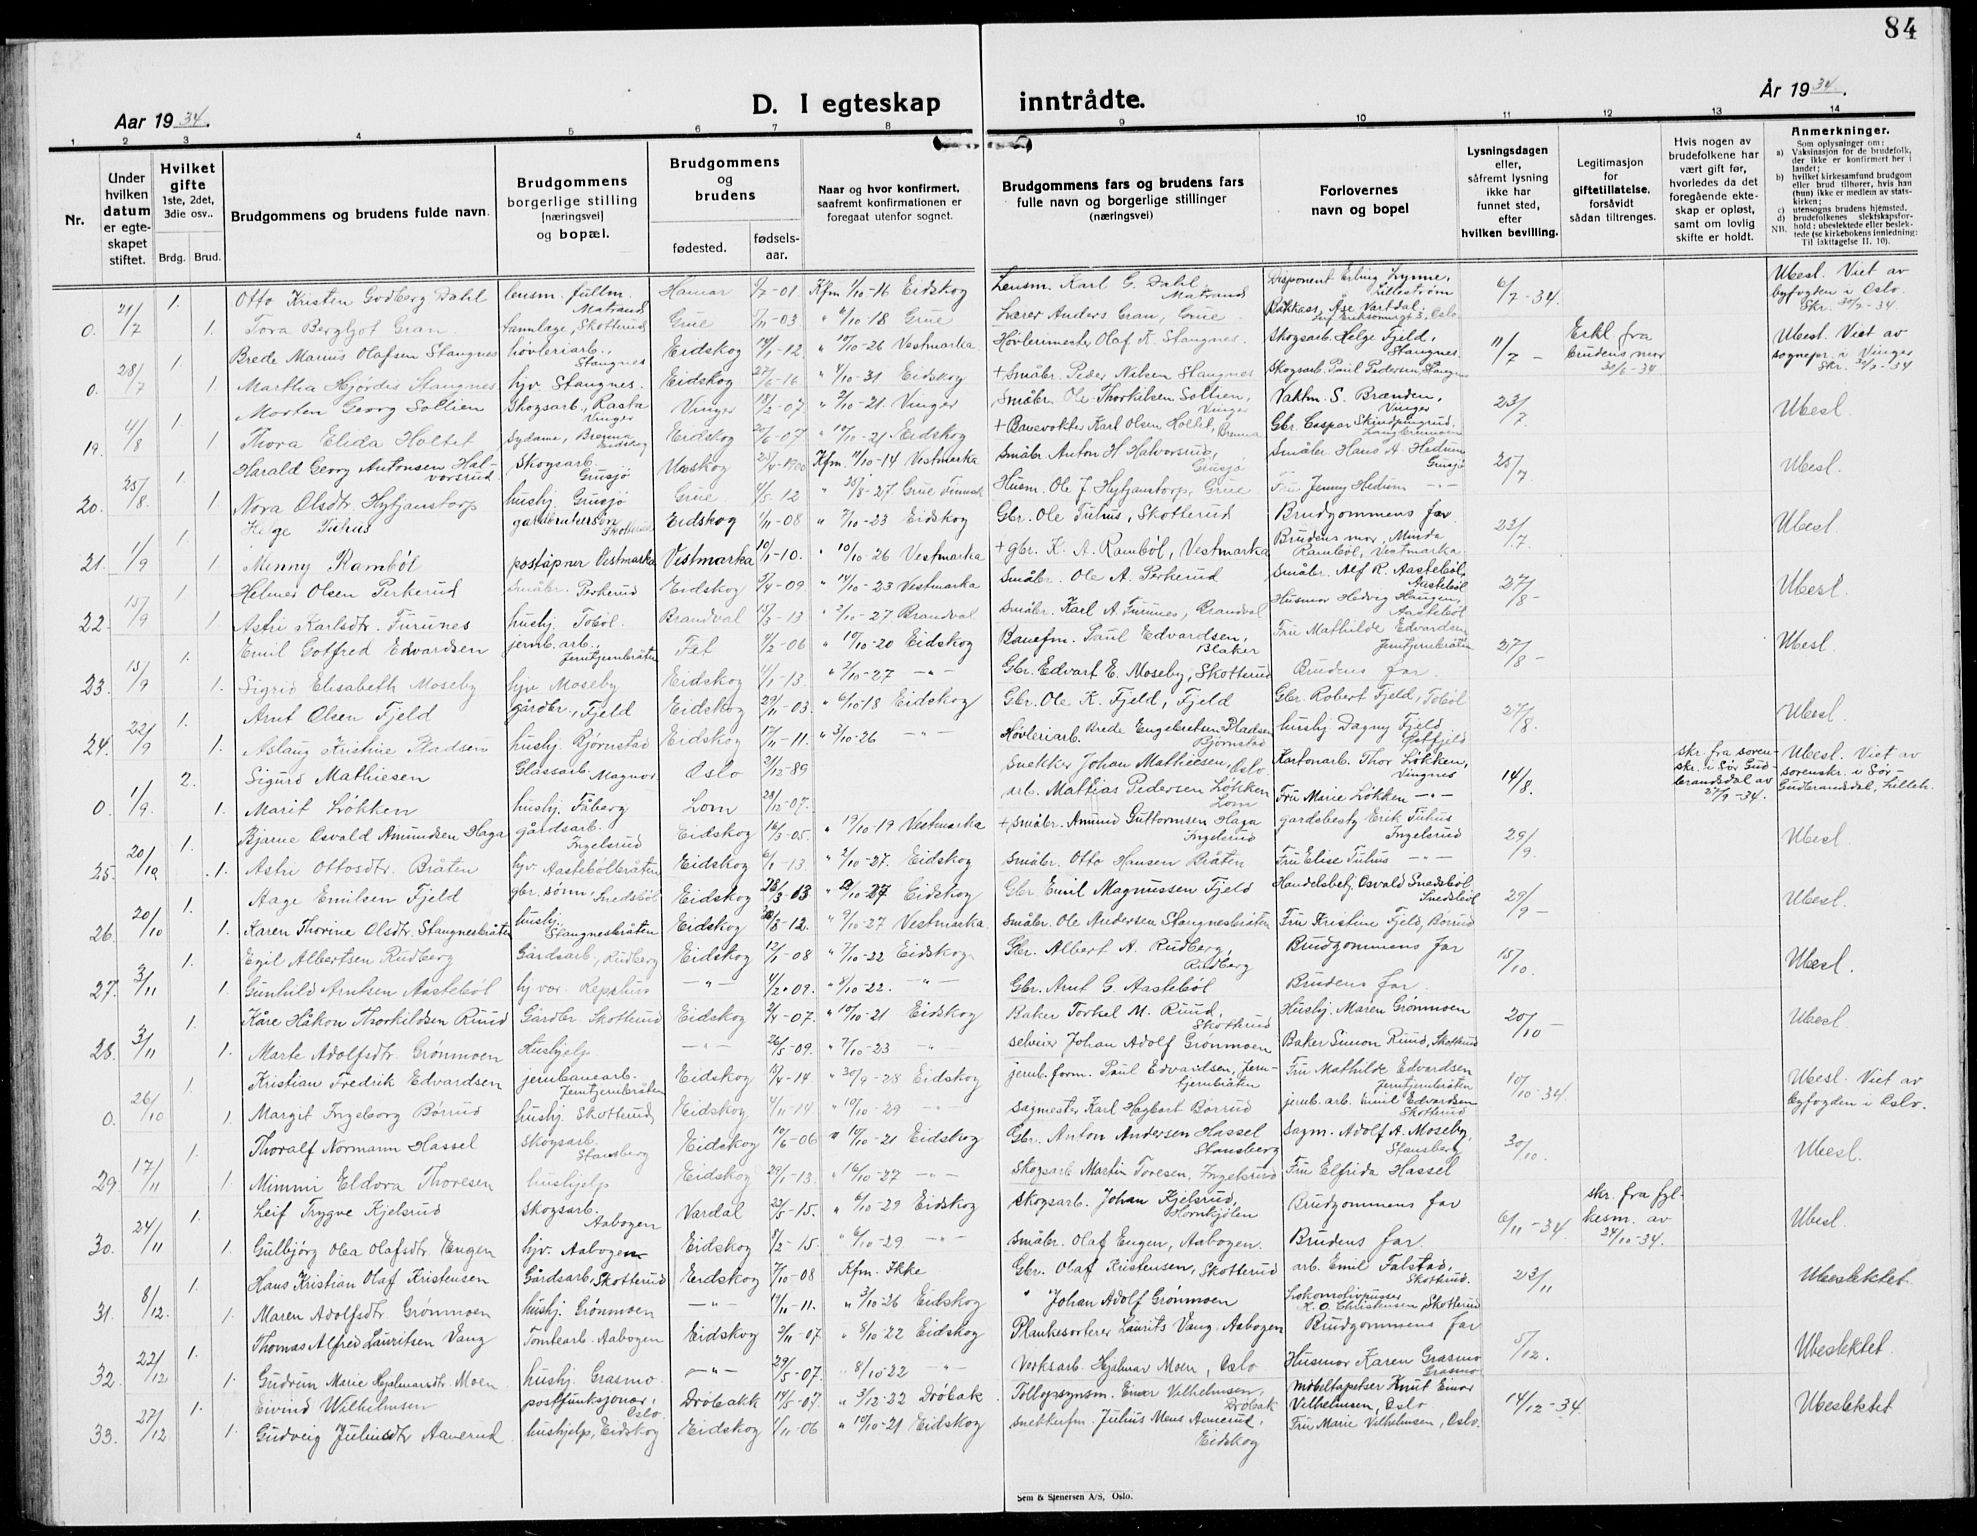 84
Aar 1934.
D. I egteskap inntrådte.
År 1934.
1 2 3 4 5 6 7 8 9 10 11 12 13 14
Nr.
Under hvilken datum er egteskapet stiftet.
Hvilket gifte 1ste, 2det, 3die osv..
Brdg. Brud.
Brudgommens og brudens fulde navn.
Brudgommens borgerlige stilling [næringsvei] og bopæl.
Brudgommens og brudens
fødested. fødselsaar.
Naar og hvor konfirmert, saafremt konfirmationen er foregaat utenfor sognet.
Brudgommens fars og brudens fars fulle navn og borgerlige stillinger (næringsvei)
Forlovernes navn og bopel
Lysningsdagen eller, såfremt lysning ikke har funnet sted, efter hvilken bevilling.
Legitimasjon for giftetillatelse, forsåvidt sådan tiltrenges.
Hvis nogen av brudefolkene har vært gift før, hvorledes da det foregående ekteskap er opløst, samt om lovlig skifte er holdt.
Anmerkninger.
Som oplysninger om:
a) Vaksinasjon for de brudefolk, der ikke er konfirmert her i landet;
b) hvilket kirkesamfund brudgom eller brud tilhører, hvis han (hun) ikke er medlem av statskirken;
c) utensogns brudens hjemsted.
d) brudefolkenes slektskapsforhold: ubeslektede eller beslektede (se kirkebokens innledning:
NB. Til iakttagelse II. 10).
21/7 1. Otto Kristen Godberg Dahl lensm. fullm. Matrand Hamar 9/7-01 Kfm 1/10-16 Eidskog Lensm. Karl G. Dahl, Matrand Disponent Erling Lynne, Lillestrøm 6/7-34. Ubesl. Viet av byfogden i Oslo.
0. 1. Tora Bergljot Gran Skotterud Grue /11-03 " /10-18 Grue Lærer Anders Gran, Grue Åse Vartdal
28/7 1. Brede Marius Olafsen Stangnes høvleriarb., Stangnes Eidskog 14/1-12 " 10/10-26 Vestmarka Høvlerimester Olaf K. Stangnes. Skogsarb. Helge Fjeld, Stangnes. 11/7 - Erkl. fra brudens mor 30/6-34 Ubesl. Viet av sognepr. i Vinger
0. 1 Martha Hjørdis Stangnes hjv. Stangnes. Eidskog 27/6-16 " 4/10-31 Eidskog + Småbr. Peder Nilsen Stangnes Skogsarb. Paul Pedersen, Stangnes
4/8 1. Morten Georg Soltien Skogsarb., Rasta Vinger Vinger 18/2-07 " 2/10-21 Vinger Småbr. Ole Thorkilsen Soltien, Vinger Vaktm. S. Brænden, Vinger 23/7 Ubesl.
19. 1 Thora Elida Holtet Sydame, Eidskog Eidskog 20/6-07 " 10/10-21 Eidskog + Banevokter Karl Olsen Holtet, Gbr. Caspar
25/8. 1. Harald Georg Antonsen Halvorsrud Skogsarb. Grusjø 25/4-1900 Kfm. 11/10-14 Vestmarka Småbr. Anton H. Halvorsrud, Grusjø Småbr. Hans A. Hedum Grusjø 25/7. Ubesl.
20. 1 Nora Olsdtr. Hytjanstorp hushj. Grusjø Grue 4/5-12 " 25/8-27 Grue Finnsk. Husm. Ole J. Hytjanstorp, Grue Fru Jenny Hedum -"-
1/9 1. Helge Tuhus Skotterud Eidskog 1/11-08 " 7/10-23 Eidskog Gbr. Ole Tuhus, Skotterud Brudgommens far 23/7. Ubesl
21. 1 Minny Rambøl poståpner Vestmarka Vestmarka 10/1-10. " 10/10-26 Vestmarka + gbr. K. A. Rambøl, Vestmarka Brudens mor, Minda Rambøl, Vestmarka
15/9 1 Helmer Olsen Perkerud Småbr. Perkerud Eidskog 3/4-09 " 14/10-23 Vestmarka Småbr. Ole A. Perkerud Småbr. Alf R. Aastebøl, Aastebøl 27/8- Ubesl.
22. 1 Astri Karlsdtr. Furunes hushj. Tobøl. Brandval 15/3-13 " 2/10-27 Brandval Småbr. Karl A. Furunes, Brandval Husmor Hedvig Haugen, Aastebøl
15/9 1. Emil Gotfred Edvardsen jernb.arb., Jerntjernbråten Fet 4/2-06 " 10/10-20 Eidskog Banefm. Paul Edvardsen, Blaker Fru Mathilde Edvardsen Jerntjernbråten 27/8- Ubesl.
23. 1. Sigrid Elisabeth Moseby hjv. Moseby Eidskog 4/1-13. " 2/10-27 -"- Gbr. Edvart E. Moseby, Skotterud Brudens far.
22/9 1. Arnt Olsen Fjeld gårdbr., Fjeld Eidskog 29/11-03. " 6/10-18 Eidskog Gbr. Ole K. Fjeld, Fjeld Gbr. Robert Fjeld, Tobøl 27/8. Ubesl.
24. 1. Aslaug Kristine Pladsen hushj. Bjørnstad Eidskog 17/11-11. " 3/10-26 -"- Høvleriarb. Brede Engebretsen Pladsen Bjørnstad hushj. Dagny Fjeld
1/9. 2. Sigurd Mathiesen Glassarb. Magnor Oslo 21/12-89 Snekker Johan Mathiesen, Oslo. Kartonarb. Thor Løkken, Vingnes 14/8. skr. fra sorenskr. i Sør Gudbrandsdal av 27/9-34. Ubesl. Viet av sorenskr. i Sør-Gudbrandsdal, Lilleh.
0. 1. Marit Løkken hushj. Fåberg Lom 28/12-07. arb. Mathias Pedersen Løkken Lom Fru Marie Løkken -"-
20/10 1. Bjarne Osvald Amundsen Haga gårdsarb. Ingelsrud Eidskog 16/3-05. " 19/10-19 Vestmarka + Småbr. Amund Guttormsen Haga Ingelsrud Gårdsbest. Erik Tuhus Ingelsrud 29/9. Ubesl.
25. 1. Astri Ottosdtr. Bråten hjv. Aastebølbråten Eidskog 6/1-13. " 2/10-27. Eidskog Småbr. Otto Hansen Bråten Fru Elise Tuhus -"-
20/10 1. Aage Emilsen Fjeld gbr. sønn, Snedsbøl Eidskog 28/3-03 " /10-27 Eidskog Gbr Emil Magnussen Fjeld Handelsbetj. Osvald Snedsbøl Snedsbøl 29/9- Ubesl.
26. 1. Karen Thorine Olsdtr. Stangnesbråten hushj. Stangnesbråten Eidskog /3-12. " 9/10-27 Vestmarka. Småbr. Ole Andersen Stangnesbråten Fru Kristine Fjeld, Børrud
3/11 1. Egil Albertsen Rudberg Gårdsarb., Rudberg Eidskog 12/1-08 " 7/10-22 Eidskog. Gbr. Albert A. Rudberg, Rudberg Brudgommens far 15/10. Ubesl.
27. 1 Gunhild Arntsen Aastebøl hj.vær. Reppshus -"- 4/2-09. " 8/10-22. -"- Gbr. Arnt G. Aastebøl Brudens far.
3/11 1. Kåre Håkon Thorkildsen Ruud Gårdbr. Skotterud Eidskog 2/4-07. " 10/10-21 Eidskog Baker Torkel M. Ruud, Skotterud Hushj. Maren Grønmoen 20/10- Ubesl.
28. 1. Marte Adolfsdtr. Grønmoen Hushjelp -"- 26/5-09. " 7/10-23 -"- selveier Johan Adolf Grønmoen Baker Simon Ruud, Skotterud
26/10 1. Kristian Fredrik Edvardsen jernbanearb. Jerntjernbråten Eidskog 15/4-14 " 30/9-28 Eidskog jernb. form. Paul Edvardsen, Jerntjernbråten Fru Mathilde Edvardsen Jerntjernbråten 10/10-34. Ubesl. Viet av byfogden i Oslo.
0. 1 Margit Ingeborg Børrud hushj. Skotterud Eidskog 4/11-14 " 10/10-29 -"- Sagmester Karl Hagbart Børrud jernb. arb. Emil Edvardsen Skotterud
17/11 1. Thoralf Normann Hassel Skogsarb. Stansberg Eidskog 10/6-06 " 10/10-21 Eidskog Gbr. Anton Andersen Hassel Stansberg Sagm. Adolf A. Moseby, Stansberg 30/10. Ubesl.
29 1. Mimmi Eldora Thoresen hushjelp Eidskog 29/1-13. " 16/10-27 -"- Skogsarb Martin Toresen, Ingelsrud Fru Elfrida Hassel
24/11 1. Leif Trygve Kjelsrud skogsarb. Aabogen Vardal 23/5-15. " 6/10-29 Eidskog skogsarb. Johan Kjelsrud, Hornkjølen Brudgommens far 6/11-34. skr. fra fylkesm. av 24/10-34. Ubesl.
30. 1. Gulbjörg Olea Olafsdtr. Engen hjv. Aabogen Eidskog 5/2-15. " 6/10-29 -"- Småbr. Olaf Engen, Aabogen. Brudens far.
8/12. 1. Hans Kristian Olaf Kristensen Gårdsarb, Skotterud Eidskog 7/10-08 Kfm. Ikke Gbr. Olaf Kristensen, Skotterud arb. Emil Falstad, Skotterud. 23/11 Ubeslektet
31. 1. Maren Adolfsdtr. Grønmoen hushj. Grønmoen -"- 17/11-11. " 3/10-26 Eidskog " Johan Adolf Grønmoen Lokomotivpusser K. O. Christensen, Skotterud
22/12 1. Thomas Alfred Lauritsen Vang Tomtearb. Aabogen Eidskog 3/11-07. " 8/10-22 Eidskog Plankesorterer Laurits Vang, Aabogen Brudgommens far 5/12. Ubeslektet.
32. 1. Gudrun Marie Hjalmarsdtr. Moen hushj. Grasmo -"- 29/5-07. " 8/10-22 -"- Verksarb. Hjalmar Moen, Oslo Husmor Karen Grasmo Grasmo
27/12 1. Eivind Wilhelmsen postfunksjonær, Oslo Drøbakk 14/5-07. " 3/12-22 Drøbak Tollopsynsm. Einar Vilhelmsen, Drøbak Møbeltapetser Knut Einar Vilhelmsen, Oslo 14/12-34 Ubeslektet
33. 1. Gudveig Juliusdtr Aamerud hushjelp, Eidskog Eidskog 1/11-06 " 10/10-21 Eidskog Snekkerfm. Julius Mens Aamerud, Eidskog Fru Marie Vilhelmsen, Oslo.
Sem & Stenersen A/S, Oslo.